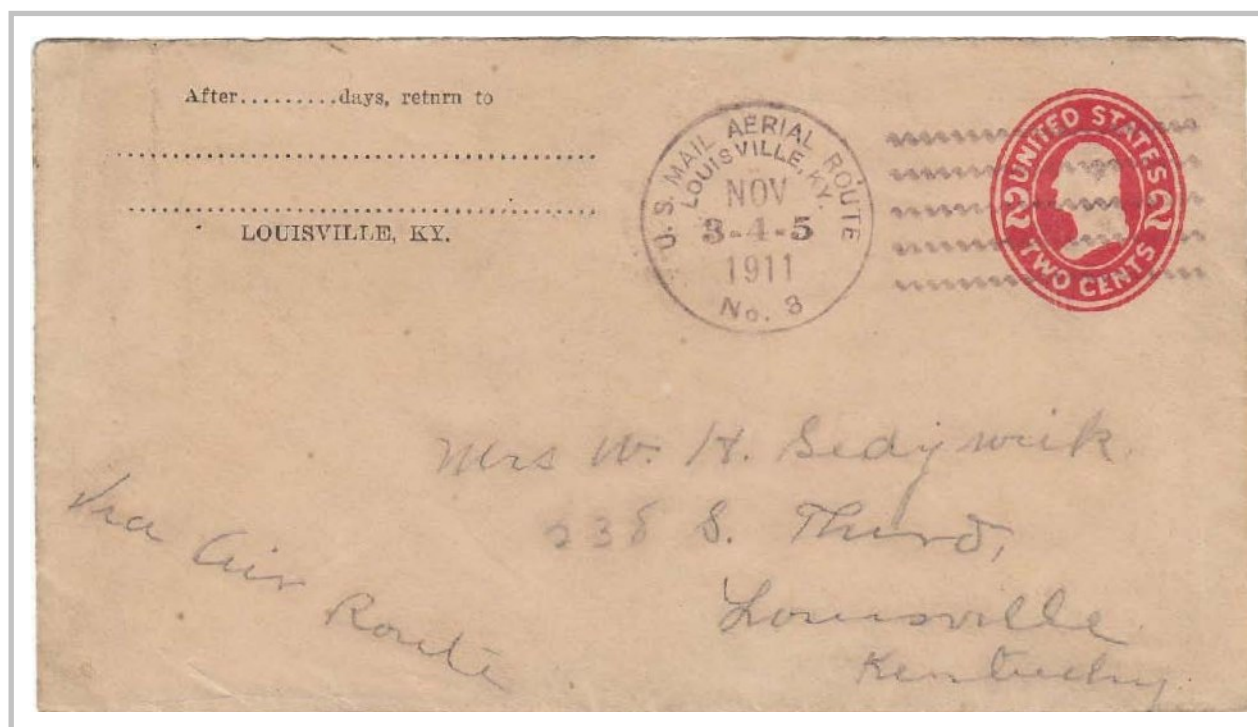 After.........days, return to
LOUISVILLE, KY.
U. S. MAIL AERIAL ROUTE
LOUISVILLE, KY.
NOV
3-4-5
1911
No. 3
UNITED STATES
2 2
TWO CENTS
Mrs W. H. Sedgwick
238 S. Third,
Louisville
Kentucky
Via Air Route